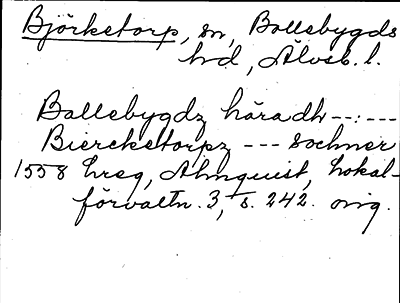 Björketorp, sn, Bollebygds
hd, Älvsb. l.
Bollebygdz häradh --:---
Biercketorpz --- sochner
1558 hreg, Almquist, Lokal-
förvaltn. 3, s. 242. orig.